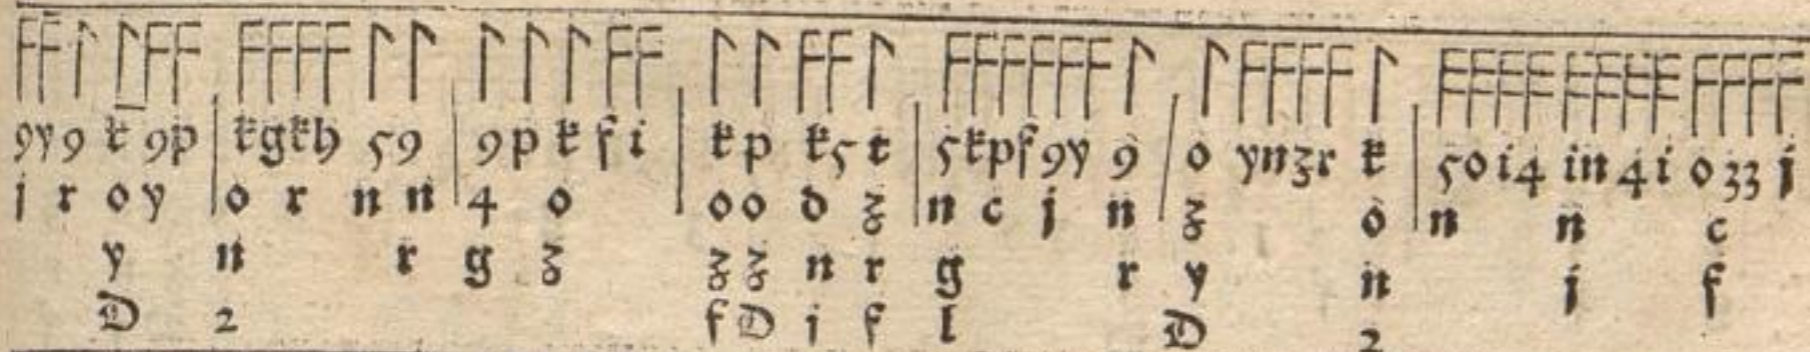 9y9 k 9p kgkh 59 9p k f i k p k5 t 5kpf 9y 9 o ynzr k 5oi4 in4i ozz j
j r o y o r n n 4 o o o d z n c j n z o n n c
y n r g z z z n r g r y n j f
D 2 f D i f l D 2